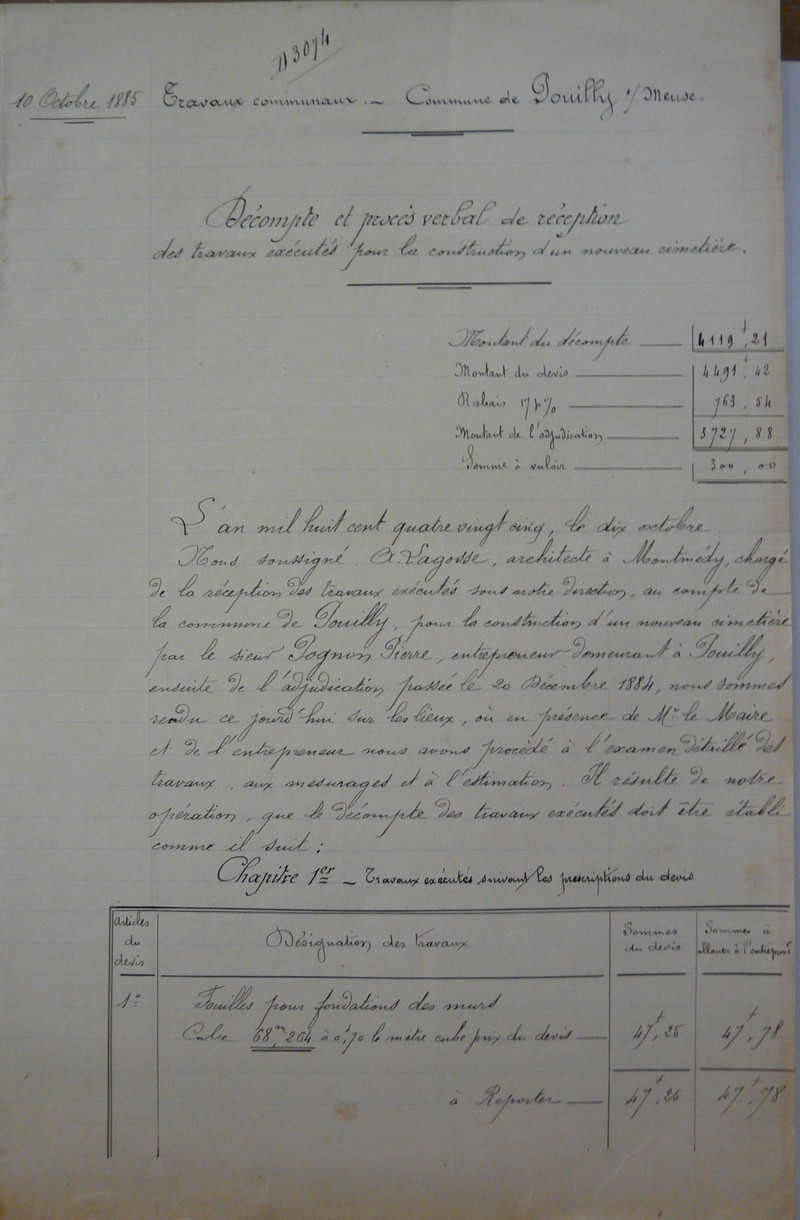 113074
10 Octobre 1885 Travaux communaux. — Commune de Pouilly s/ Meuse.
Décompte et procès verbal de réception
des travaux exécutés pour la construction d'un nouveau cimetière.
Montant du décompte 4119f,21
Montant du devis 4491f,42
Rabais 17 % 763,54
Montant de l'adjudication 3727,88
Somme à valoir 300,00
L'an mil huit cent quatre vingt cinq, le dix octobre.
Nous soussigné A. Lagosse, architecte à Montmédy, chargé
de la réception des travaux exécutés sous notre direction, au compte de
la commune de Pouilly, pour la construction d'un nouveau cimetière
par le sieur Pognon Pierre, entrepreneur demeurant à Pouilly,
ensuite de l'adjudication passée le 20 Décembre 1884, nous sommes
rendu ce jourd'hui sur les lieux, où en présence de Mr le Maire
et de l'entrepreneur nous avons procédé à l'examen détaillé des
travaux, aux mesurages et à l'estimation. Il résulte de notre
opération, que le décompte des travaux exécutés doit être établi
comme il suit :
Chapitre 1er — Travaux exécutés suivant les prescriptions du devis
Articles du devis
Désignation des travaux
Sommes du devis
Sommes à allouer à l'entrepr
1:
Fouilles pour fondations des murs
Cube 68m,264 à 0f,70 le mètre cube prix du devis 47f,26 47f,78
à Reporter 47f,26 47f,78